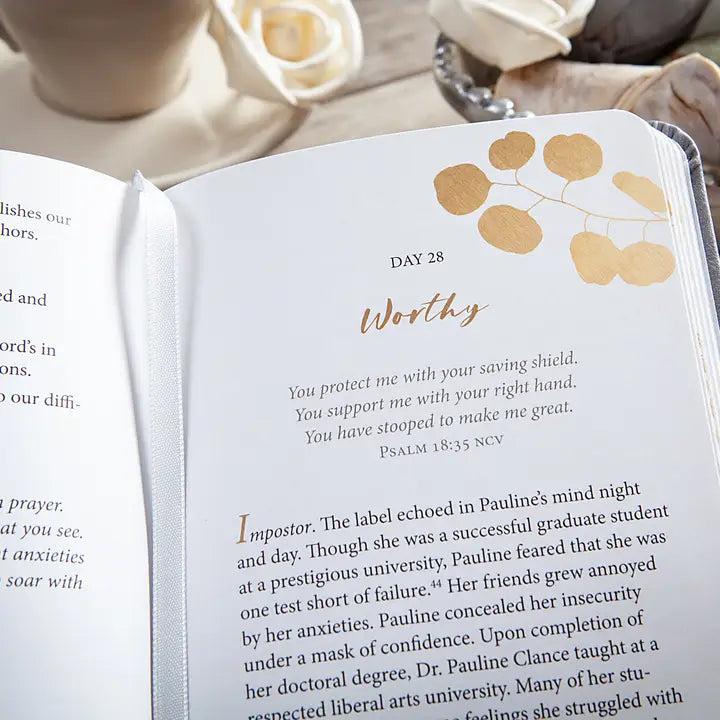 lishes our
hors.
ed and
ord's in
ons.
o our diffi-
prayer.
at you see.
t anxieties
soar with
DAY 28
Worthy
You protect me with your saving shield.
You support me with your right hand.
You have stooped to make me great.
PSALM 18:35 NCV
Impostor. The label echoed in Pauline's mind night
and day. Though she was a successful graduate student
at a prestigious university, Pauline feared that she was
one test short of failure.44 Her friends grew annoyed
by her anxieties. Pauline concealed her insecurity
under a mask of confidence. Upon completion of
her doctoral degree, Dr. Pauline Clance taught at a
respected liberal arts university. Many of her stu-
feelings she struggled with